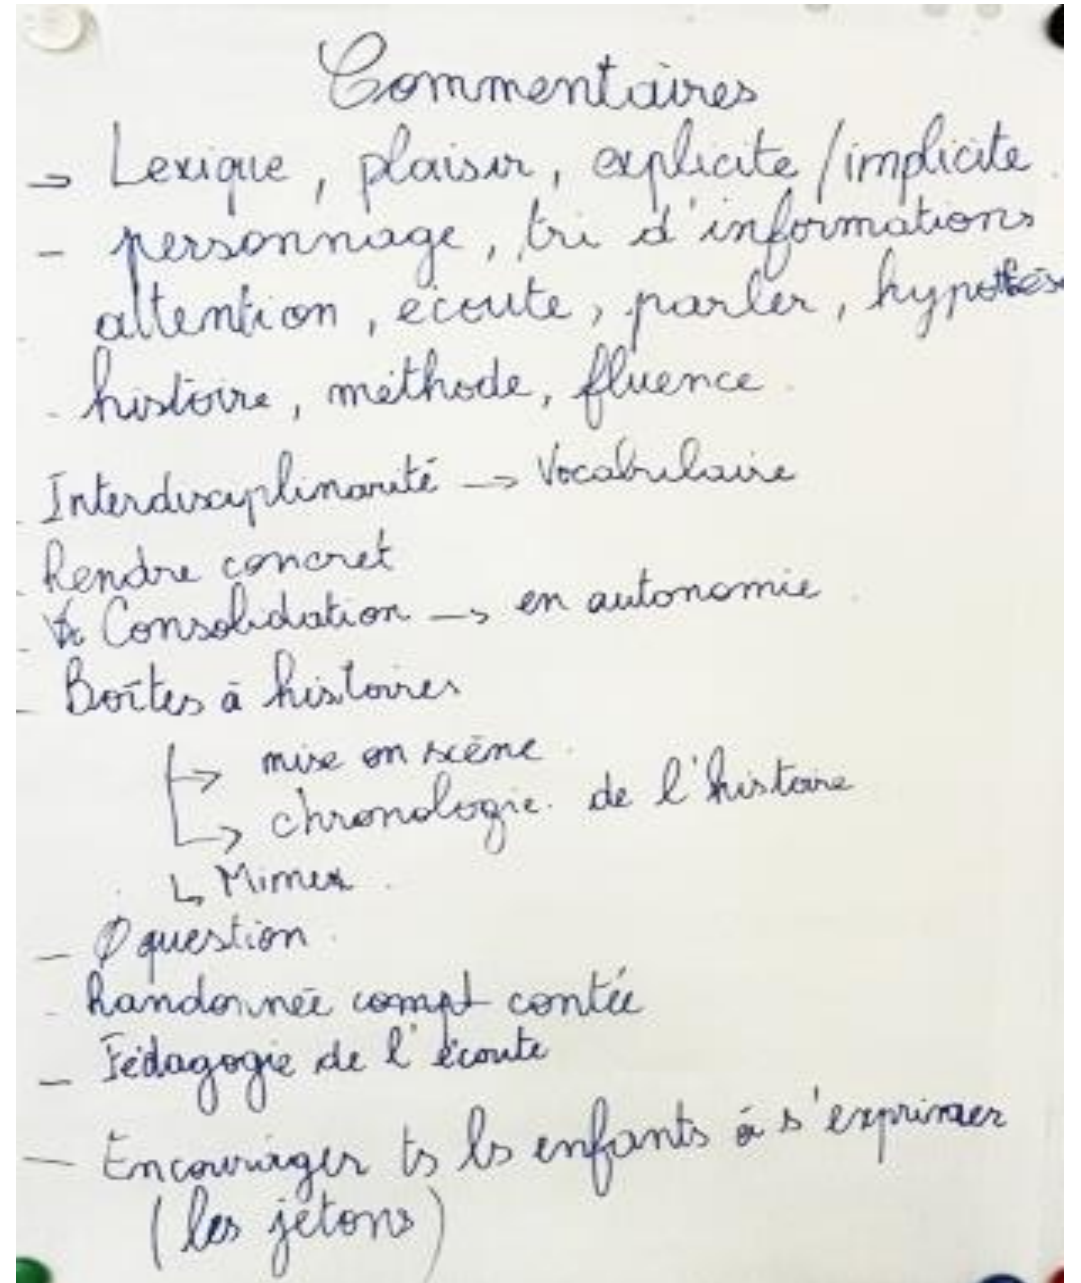 Commentaires
→ Lexique, plaisir, explicite / implicite.
- personnage, tri d'informations
- attention, écoute, parler, hypothès
- histoire, méthode, fluence.
- Interdisciplinarité → Vocabulaire
- Rendre concret
- Consolidation → en autonomie.
- Boîtes à histoires
↳ mise en scène.
↳ chronologie. de l'histoire
↳ Mimer.
- Ø question.
- Randonnée contée
- Pédagogie de l'écoute
- Encourager ts ls enfants à s'exprimer
(les jetons)